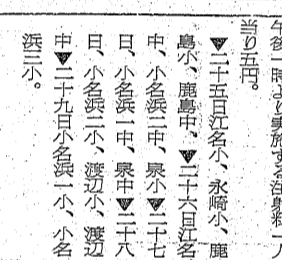 午後一時より実施する注射料一人
当り五円。
▼二十五日江名小、永崎小、鹿
島小、鹿島中、▼二十六日江名
中、小名浜二中、泉小▼二十七
日、小名浜一中、泉中▼二十八
日、小名浜二小、渡辺小、渡辺
中▼二十九日小名浜一小、小名
浜三小。